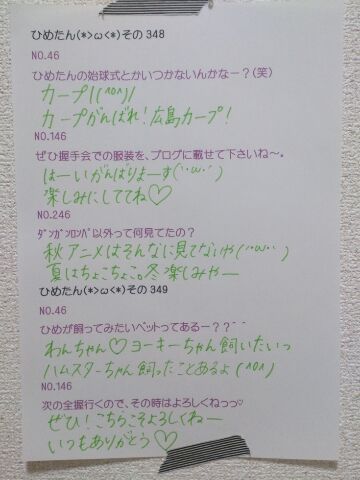 ひめたん(*>ω<*)その348
NO.46
ひめたんの始球式とかいつかないんかなー?(笑)
カープ!(^o^)!
カープがんばれ!広島カープ!
NO.146
ぜひ握手会での服装を、ブログに載せて下さいね〜。
はーいがんばりまーす(´･ω･`)
楽しみにしててね♡
NO.246
ﾀﾞﾝｶﾞﾝﾛﾝﾊﾟ以外って何見てたの?
秋アニメはそんなに見てないや(´･ω･`)
夏はちょこちょこ。冬楽しみやー
ひめたん(*>ω<*)その349
NO.46
ひめが飼ってみたいペットってあるー??＾＾
わんちゃん♡ヨーキーちゃん飼いたいっ
ハムスターちゃん飼ったことあるよ(^o^)
NO.146
次の全握行くので、その時はよろしくねっっ♡
ぜひ!こちらこそよろしくねー
いつもありがとう♡